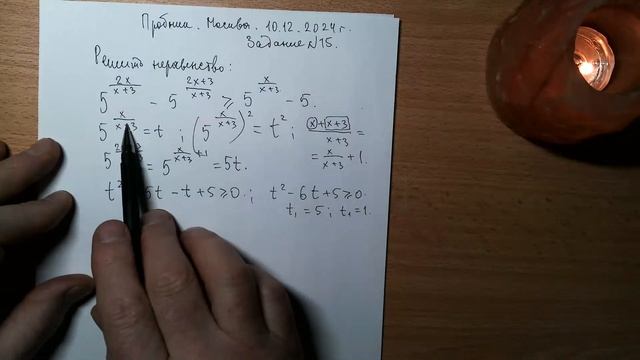 Пробник. Москвы. 10.12.2024г.
Задание №15.
Решить неравенство:
5^{\frac{2x}{x+3}} - 5^{\frac{2x+3}{x+3}} ≥ 5^{\frac{x}{x+3}} - 5.
5^{\frac{x}{x+3}} = t ; (5^{\frac{x}{x+3}})^2 = t^2 ; \frac{x+x+3}{x+3} =
= 5^{\frac{x}{x+3}+1} = 5t. = \frac{x}{x+3} + 1.
5t - t + 5 ≥ 0 ; t^2 - 6t + 5 ≥ 0.
t_1 = 5 ; t_1 = 1.